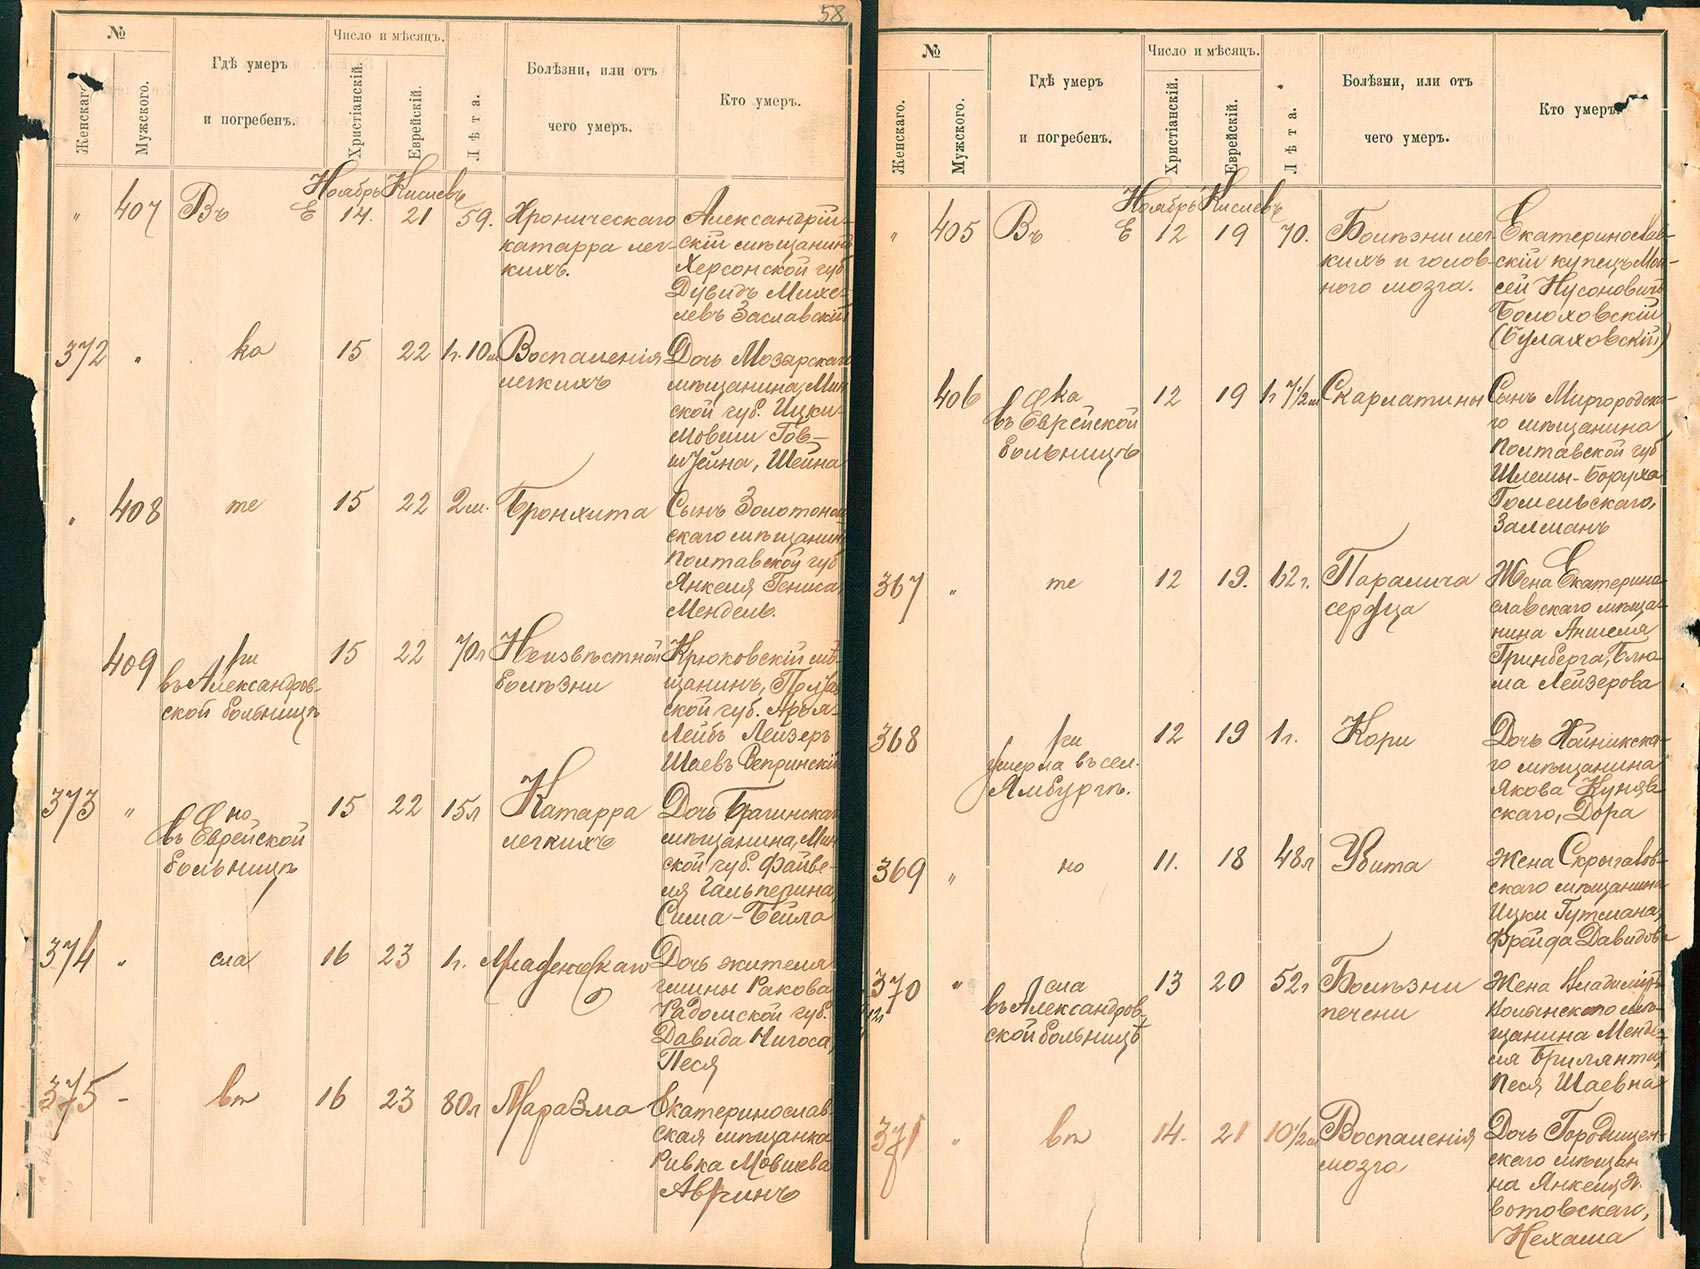 58
№
Женскаго.
Мужского.
Гдѣ умеръ
и погребенъ.
Число и мѣсяцъ.
Христіанскій.
Еврейскій.
Лѣта.
Болѣзни, или отъ
чего умеръ.
Кто умеръ.
Ноябрь Кислевъ
" 407 Въ Е 14. 21 59.
Хроническаго
катарра лег-
кихъ.
Александрій-
скій мѣщанинъ
Херсонской губ
Дувидъ Михе-
левъ Заславскій
372 " ка 15 22 1г. 10м
Воспаленія
легкихъ
Дочь Мозарскаго
мѣщанина, Мин
ской губ. Ицки-
Мовши Гов-
штейна, Шейна
" 408 те 15 22 2м.
Бронхита
Сынъ Золотоно
скаго мѣщанин
Полтавской губ
Янкеля Гениса,
Мендель.
409 ри 15 22 70л
въ Александров-
ской больницѣ
Неизвѣстной
болѣзни
Крюковскій мѣ-
щанинъ, Полтав
ской губ. Арья-
Лейбъ Лейзеръ
Шаевъ Вепринскій
373 " но 15 22 15л
въ Еврейской
больницѣ
Катарра
легкихъ
Дочь Брагинскаг
мѣщанина, Мин
ской губ. Файве-
ля Гальперина,
Сима-Бейла
374 " сла 16 23 1г.
Младенческаго
Дочь жителя
гмины Ракова
Радомской губ.
Давида Нигоса,
Песя
375 - вѣ 16 23 80л
Маразма
Екатеринослав-
ская мѣщанка
Ривка Мовшева
Авринъ
№
Женскаго.
Мужского.
Гдѣ умеръ
и погребенъ.
Число и мѣсяцъ.
Христіанскій.
Еврейскій.
Лѣта.
Болѣзни, или отъ
чего умеръ.
Кто умеръ.
Ноябрь Кислевъ
" 405 Въ Е 12 19 70.
Болѣзни лег-
кихъ и голов-
ного мозга.
Екатеринослав-
скій купецъ Мои-
сей Нусоновичъ
Болоховскій
(Булаховскій)
406 ка 12 19 1г 7 1/2м
въ Еврейской
больницѣ
Скарлатины
Сынъ Миргородска-
го мѣщанина
Полтавской губ
Шлемы-Боруха
Гомельскаго,
Залманъ
367 " те 12 19. 62г.
Паралича
сердца
Жена Екатерино-
славскаго мѣща-
нина Аншеля
Гринберга, Блю-
ма Лейзерова
368 ри 12 19 1г.
умерла въ сел.
Ямбургѣ.
Кори
Дочь Хойникска-
го мѣщанина
Якова Куняв-
скаго, Дора
369 " но 11. 18 48л
Убита
Жена Скрыгалов-
скаго мѣщанина
Ицки Гутмана,
Фрейда Давидова
370 " сла 13 20 52г
въ Александров-
ской больницѣ
Болѣзни
печени
Жена Владимиръ
Волынского мѣ-
щанина Менде-
ля Брилянта,
Песя Шаевна
371 " вѣ 14. 21 10 1/2м
Воспаленія
мозга
Дочь Городищен-
скаго мѣщан
на Янкеля
вотовскаго,
Нехама